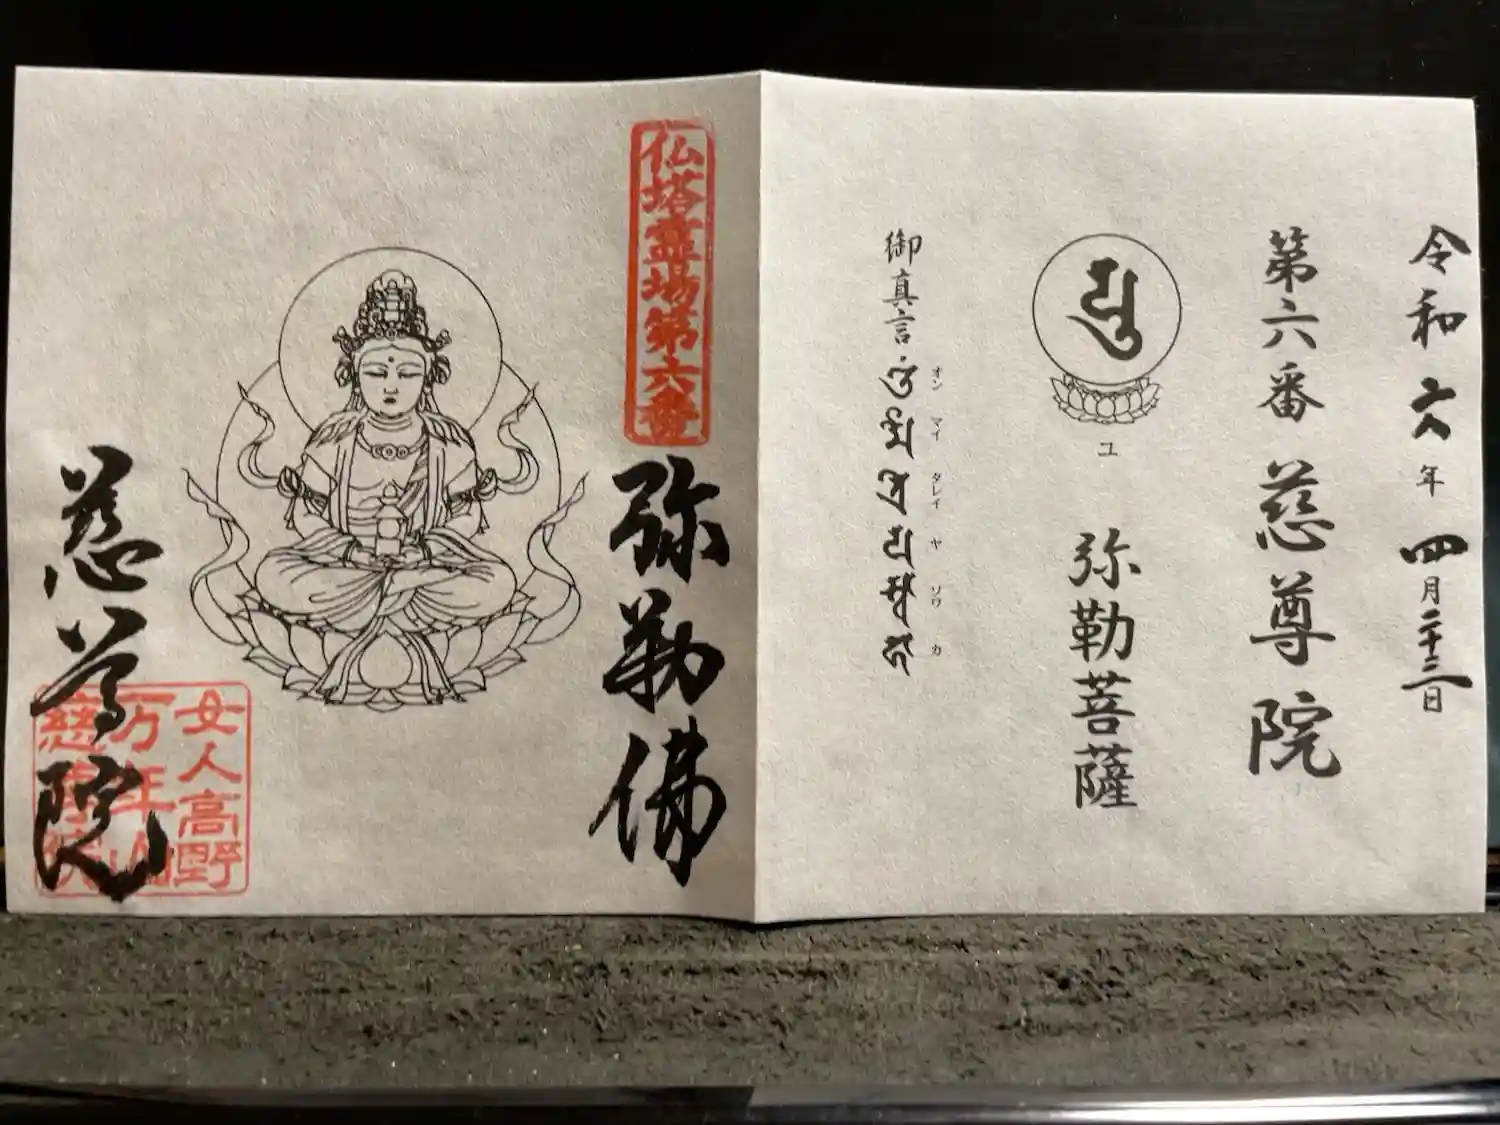 令和六年四月二十三日
第六番 慈尊院
ユ
弥勒菩薩
御真言
オン マイ タレイ ヤ ソワ カ
仏塔霊場第六番
弥勒佛
女人高野
万年山
慈尊院
慈尊院